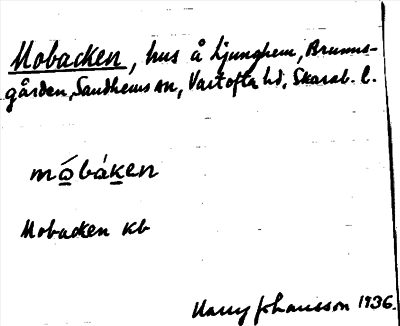 Mobacken, hus å Ljunghem, Brunns-
gården, Sandhems sn, Vartofta hd, Skarab. l.
må̀báken
Mobacken kb
Harry Johansson 1936.